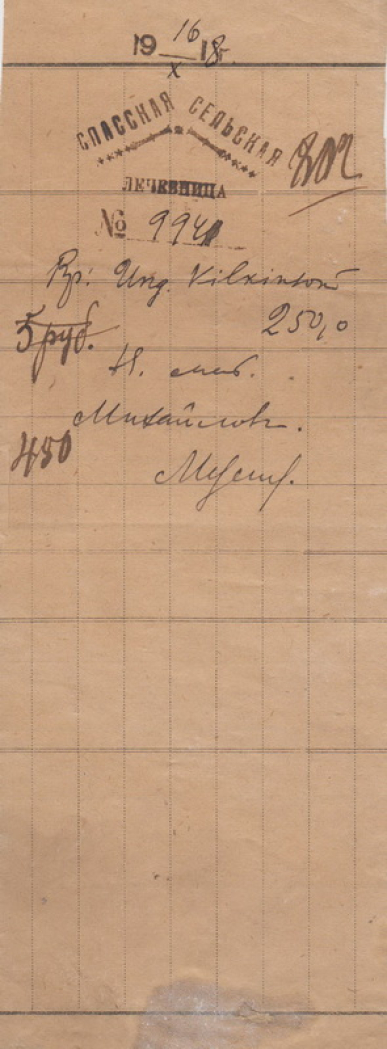 19 16/X 18 г.
СПАССКАЯ СЕЛЬСКАЯ
ЛЕЧЕБНИЦА
№ 9941
Rp: Ung. Vilkinsoni
250,0
5 руб.
Михайлов.
450